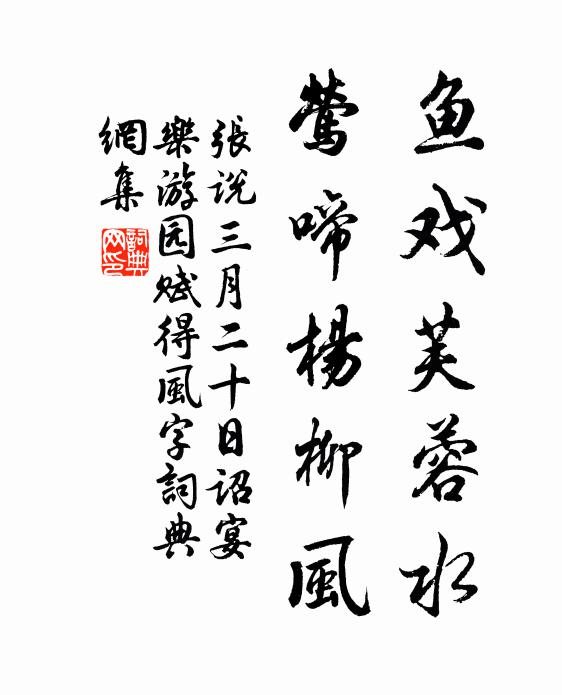 鱼戏芙蓉水
莺啼楊柳風
張说三月二十日诏宴
樂游园赋得風字詞典
網集
詞典
网印